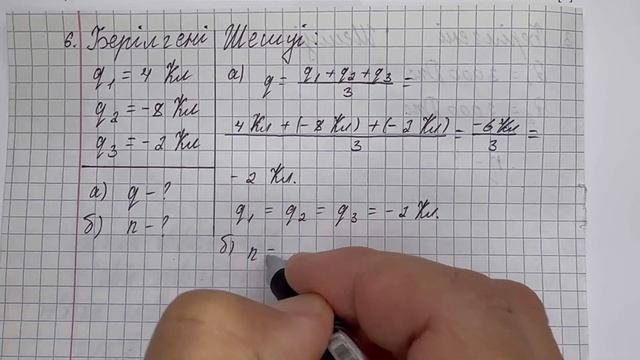 6. Берілгені
q₁ = 4 Кл
q₂ = -8 Кл
q₃ = -2 Кл
а) q - ?
б) n - ?
Шешуі:
а) q = (q₁ + q₂ + q₃)/3 =
(4 Кл + (-8 Кл) + (-2 Кл))/3 = (-6 Кл)/3 =
-2 Кл.
q₁ = q₂ = q₃ = -2 Кл.
б) n =